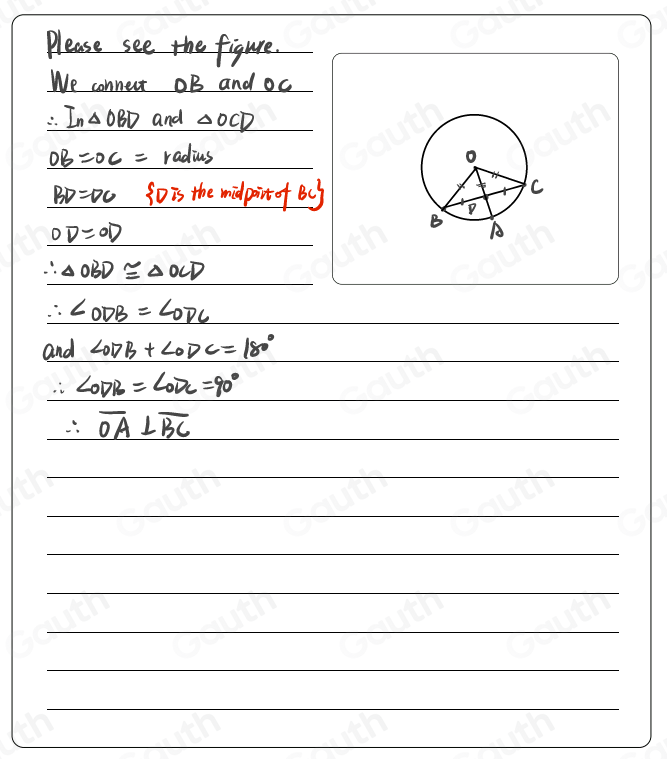 Please see the figure.
We connect OB and OC
∴ In △OBD and △OCD
OB = OC = radius
BD = DC {D is the midpoint of BC}
OD = OD
∴ △OBD ≅ △OCD
∴ ∠ODB = ∠ODC
and ∠ODB + ∠ODC = 180°
∴ ∠ODB = ∠ODC = 90°
∴ \overline{OA} ⊥ \overline{BC}
O
C
B
D
A
Gauth